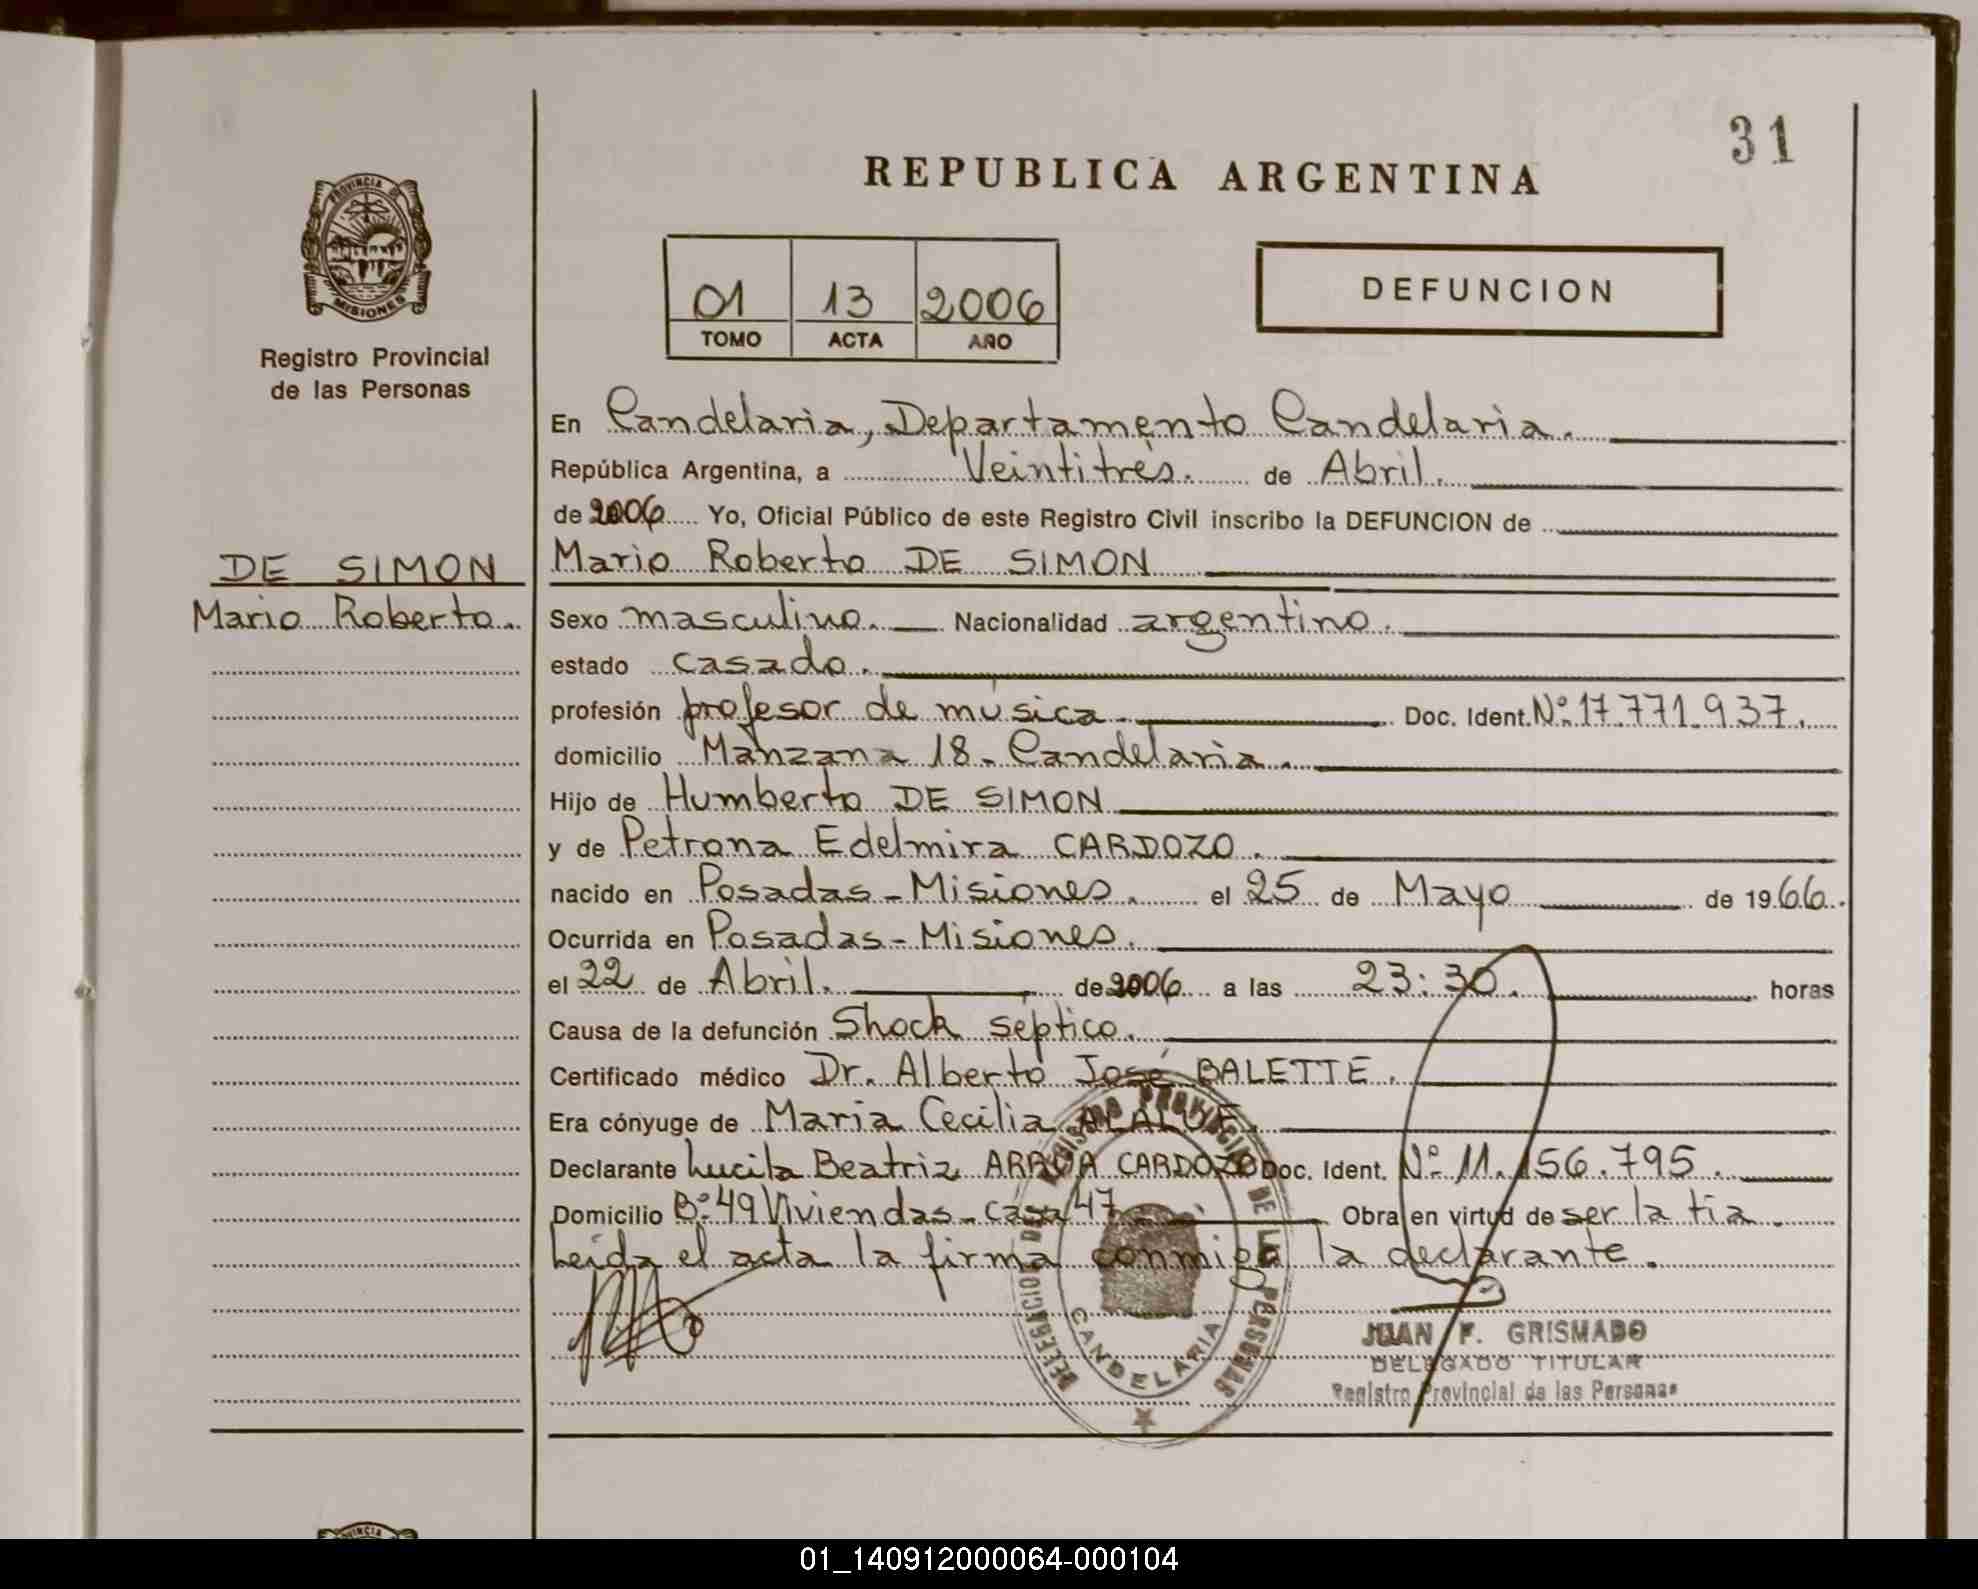 31
REPUBLICA ARGENTINA
PROVINCIA DE
MISIONES
Registro Provincial
de las Personas
01 13 2006
TOMO ACTA AÑO
DEFUNCION
En Candelaria, Departamento Candelaria.
República Argentina, a Veintitrés. de Abril.
de 2006 Yo, Oficial Público de este Registro Civil inscribo la DEFUNCION de
DE SIMON
Mario Roberto.
Mario Roberto DE SIMON
Sexo masculino. Nacionalidad argentino.
estado casado.
profesión profesor de música. Doc. Ident. Nº 17.771.937.
domicilio Manzana 18 - Candelaria.
Hijo de Humberto DE SIMON
y de Petrona Edelmira CARDOZO.
nacido en Posadas - Misiones. el 25 de Mayo de 1966.
Ocurrida en Posadas - Misiones.
el 22 de Abril. de 2006 a las 23:30. horas
Causa de la defunción Shock séptico.
Certificado médico Dr. Alberto José BALETTE.
Era cónyuge de Maria Cecilia
Declarante Lucila Beatriz CARDOZO Doc. Ident. Nº 11.156.795.
Domicilio Bº 49 Viviendas - Casa 47 Obra en virtud de ser la tía.
Leída el acta la firma conmigo la declarante.
REGISTRO PROVINCIAL DE LAS PERSONAS
CANDELARIA
JUAN F. GRISMADO
DELEGADO TITULAR
Registro Provincial de las Personas
01_140912000064-000104